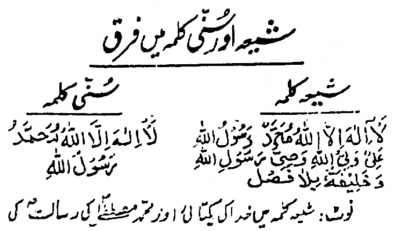 شیعہ اور سُنّی کلمہ میں فرق
شیعہ کلمہ
لَآ اِلٰہَ اِلَّا اللہُ مُحَمَّدٌ رَسُوْلُ اللہِ
عَلِیٌّ وَلِیُّ اللہِ وَصِیُّ رَسُوْلِ اللہِ
وَخَلِیْفَتُہٗ بِلَا فَصْلٍ
سُنّی کلمہ
لَآ اِلٰہَ اِلَّا اللہُ مُحَمَّدٌ
رَسُوْلُ اللہِ
نوٹ: شیعہ کلمہ میں خدا کی یکتائی اور محمد مصطفےٰؐ کی رسالت کی